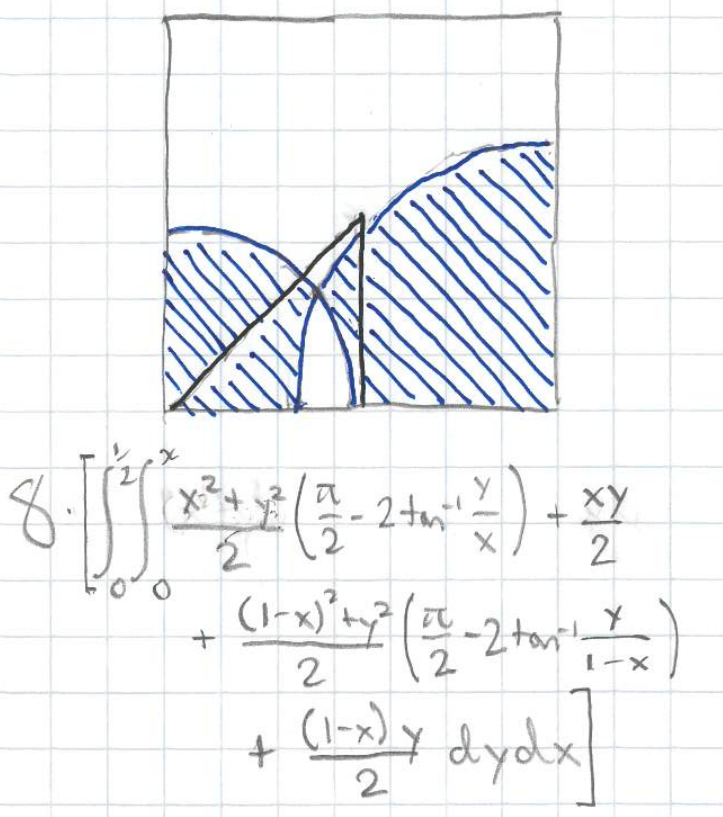 8·[∫₀^½ ∫₀^x (x²+y²)/2 (π/2 - 2tan⁻¹ y/x) + xy/2
+ ((1-x)²+y²)/2 (π/2 - 2tan⁻¹ y/(1-x))
+ (1-x)y/2 dydx]